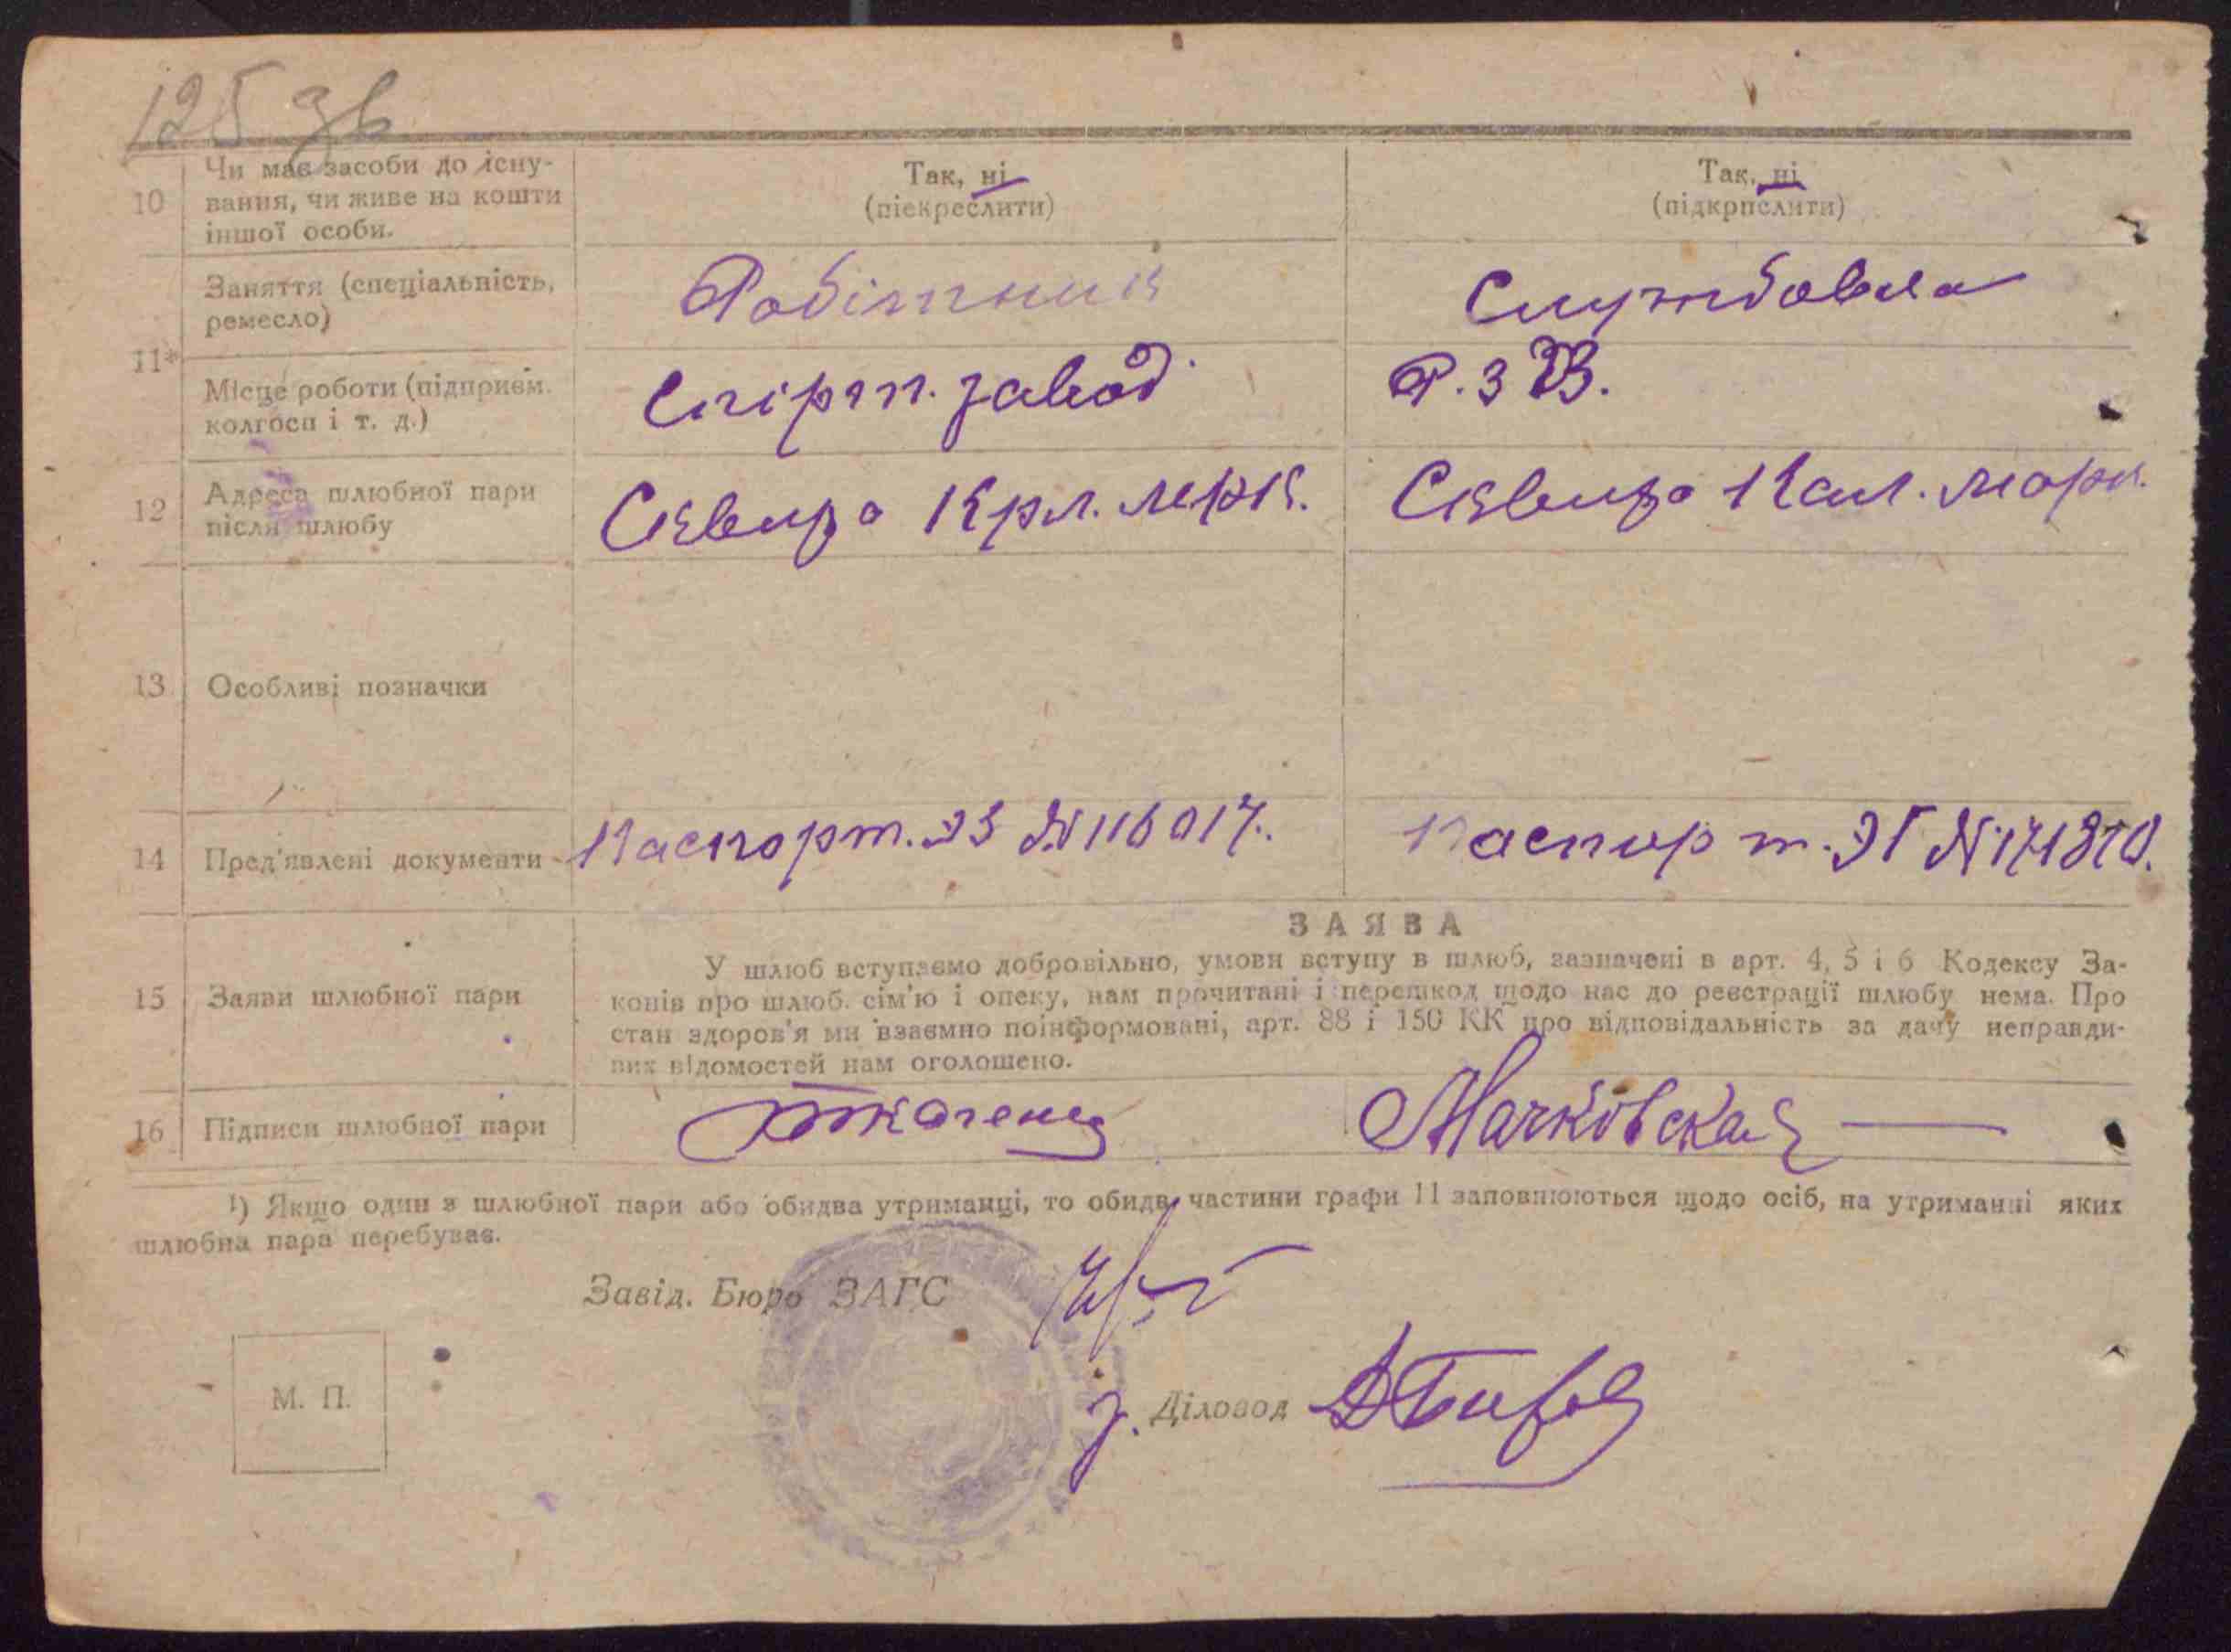 125 зв
10 Чи має засоби до існу-
вання, чи живе на кошти
іншої особи.
Так, ні
(піекреслити)
Так, ні
(підкрпслити)
11*
Заняття (спеціальність,
ремесло)
Робітник
Службовка
Місце роботи (підприєм.
колгосп і т. д.)
Спірт. завод.
Р.З В.
12 Адреса шлюбної пари
після шлюбу
Сквира Крл. Марк.
Сквира Кал. Марк.
13 Особливі позначки
14 Пред'явлені документи
Паспорт. ЭЗ № 116017.
Паспорт. ЭГ № 171870.
15 Заяви шлюбної пари
ЗАЯВА
У шлюб вступаємо добровільно, умови вступу в шлюб, зазначені в арт. 4, 5 і 6 Кодексу За-
конів про шлюб. сім'ю і опеку, нам прочитані і перешкод щодо нас до реєстрації шлюбу нема. Про
стан здоров'я ми взаємно поінформовані, арт. 88 і 150 КК про відповідальність за дачу неправди-
вих відомостей нам оголошено.
16 Підписи шлюбної пари
Мачковская
¹) Якщо один з шлюбної пари або обидва утриманці, то обидві частини графи 11 заповнюються щодо осіб, на утриманні яких
шлюбна пара перебуває.
Завід. Бюро ЗАГС
М. П.
з. Діловод